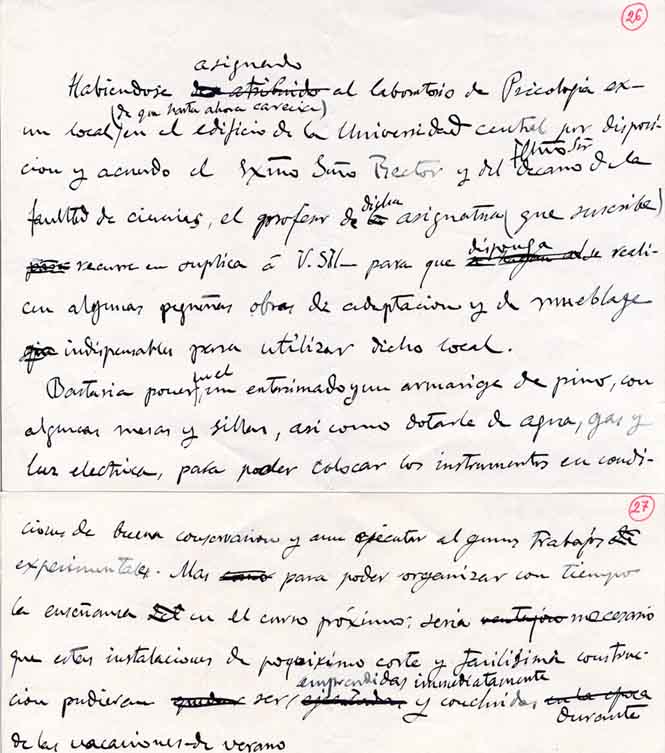 26
asignado
Habiendose de atribuido al laboratorio de Psicología ex-
(de que hasta ahora carecía)
un local en el edificio de la Universidad central por disposi-
Iltmo Sor
cion y acuerdo el Exmo Seño Rector y del decano de la
dicha
facultad de ciencias, el profesor de la asignatura (que suscribe)
disponga
para recurre en suplica á V.S.Il para que se reali-
cen algunas pequeñas obras de adaptacion y de mueblage
que indispensables para utilizar dicho local.
en el
Bastaria poner, un entarimado y un armariage de pino, con
algunas mesas y sillas, asi como dotarle de agua, gas y
luz electrica, para poder colocar los instrumentos en condi-
27
ciones de buena conservacion y aun ejecutar algunos trabajos de
experimentales. Mas como para poder organizar con tiempo
la enseñanza en el curso próximo; seria ventajoso necesario
que estas instalaciones de poquisimo corte y facilisima construc-
emprendidas immediatamente
cion pudieran quedar ser ejecutadas y concluidas en la epoca
durante
de las vacaciones de verano